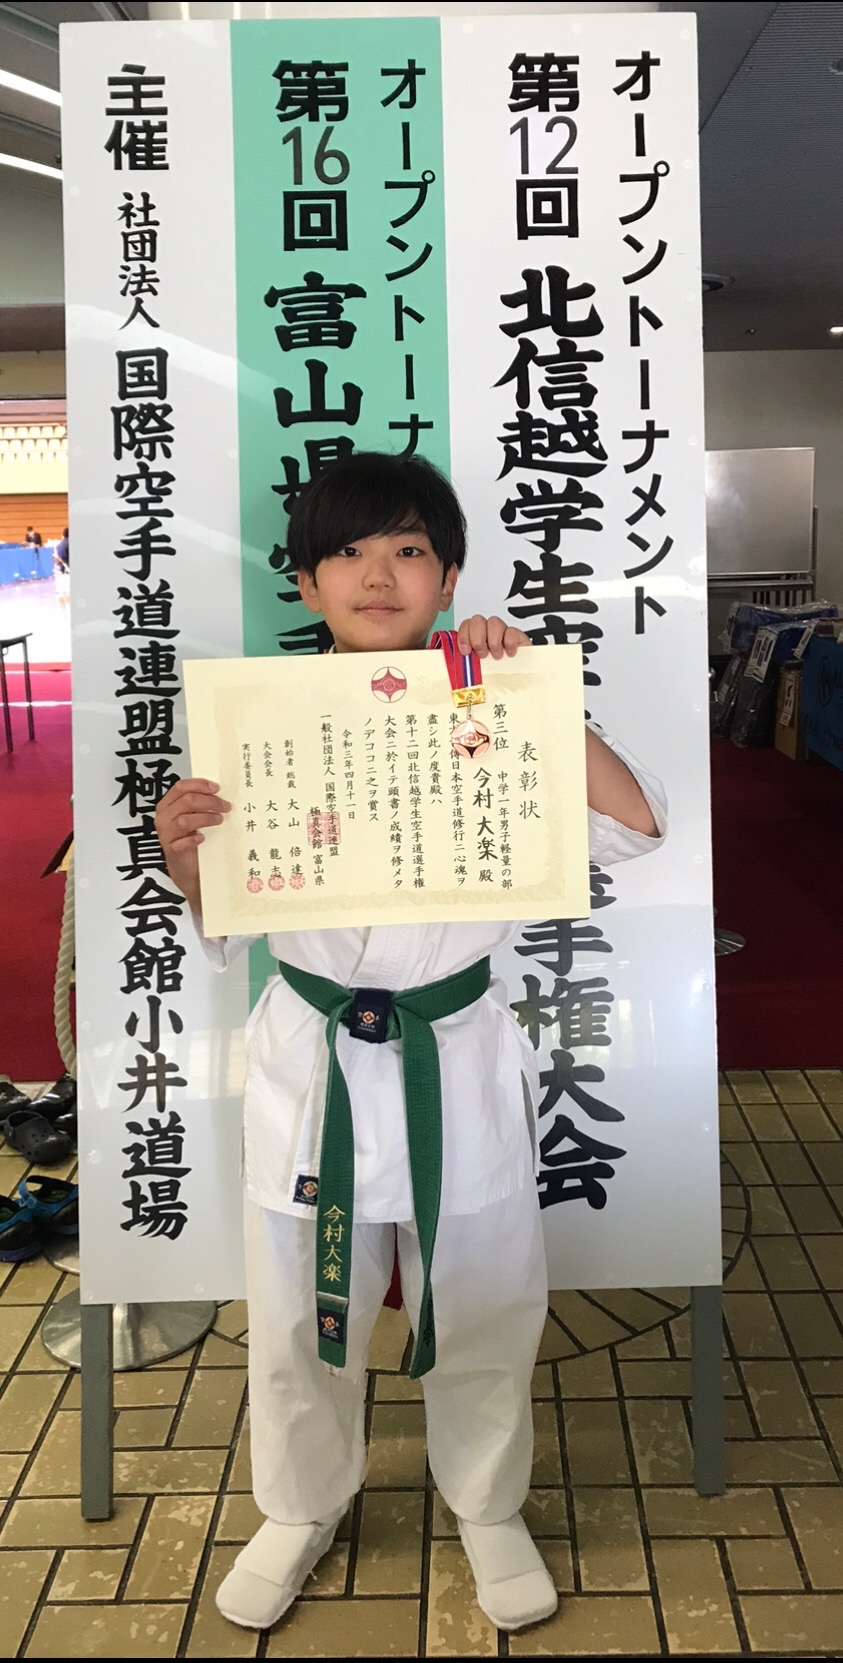 オープントーナメント
第12回 北信越学生空手
手権大会
オープントーナ
第16回 富山県空手
主催 社団法人 国際空手道連盟極真会館小井道場
表彰状
第三位 中学一年男子軽量の部
今村 大楽 殿
伝日本空手道修行ニ心魂ヲ
盡シ此ノ度貴殿ハ
第十二回北信越学生空手道選手権
大会ニ於イテ頭書ノ成績ヲ修メタ
ノデココニ之ヲ賞ス
令和三年四月十一日
一般社団法人 国際空手道連盟
極真会館 富山県
創始者 総裁 大山 倍達
大会会長 大谷 龍志
実行委員長 小井 義和
今村大楽